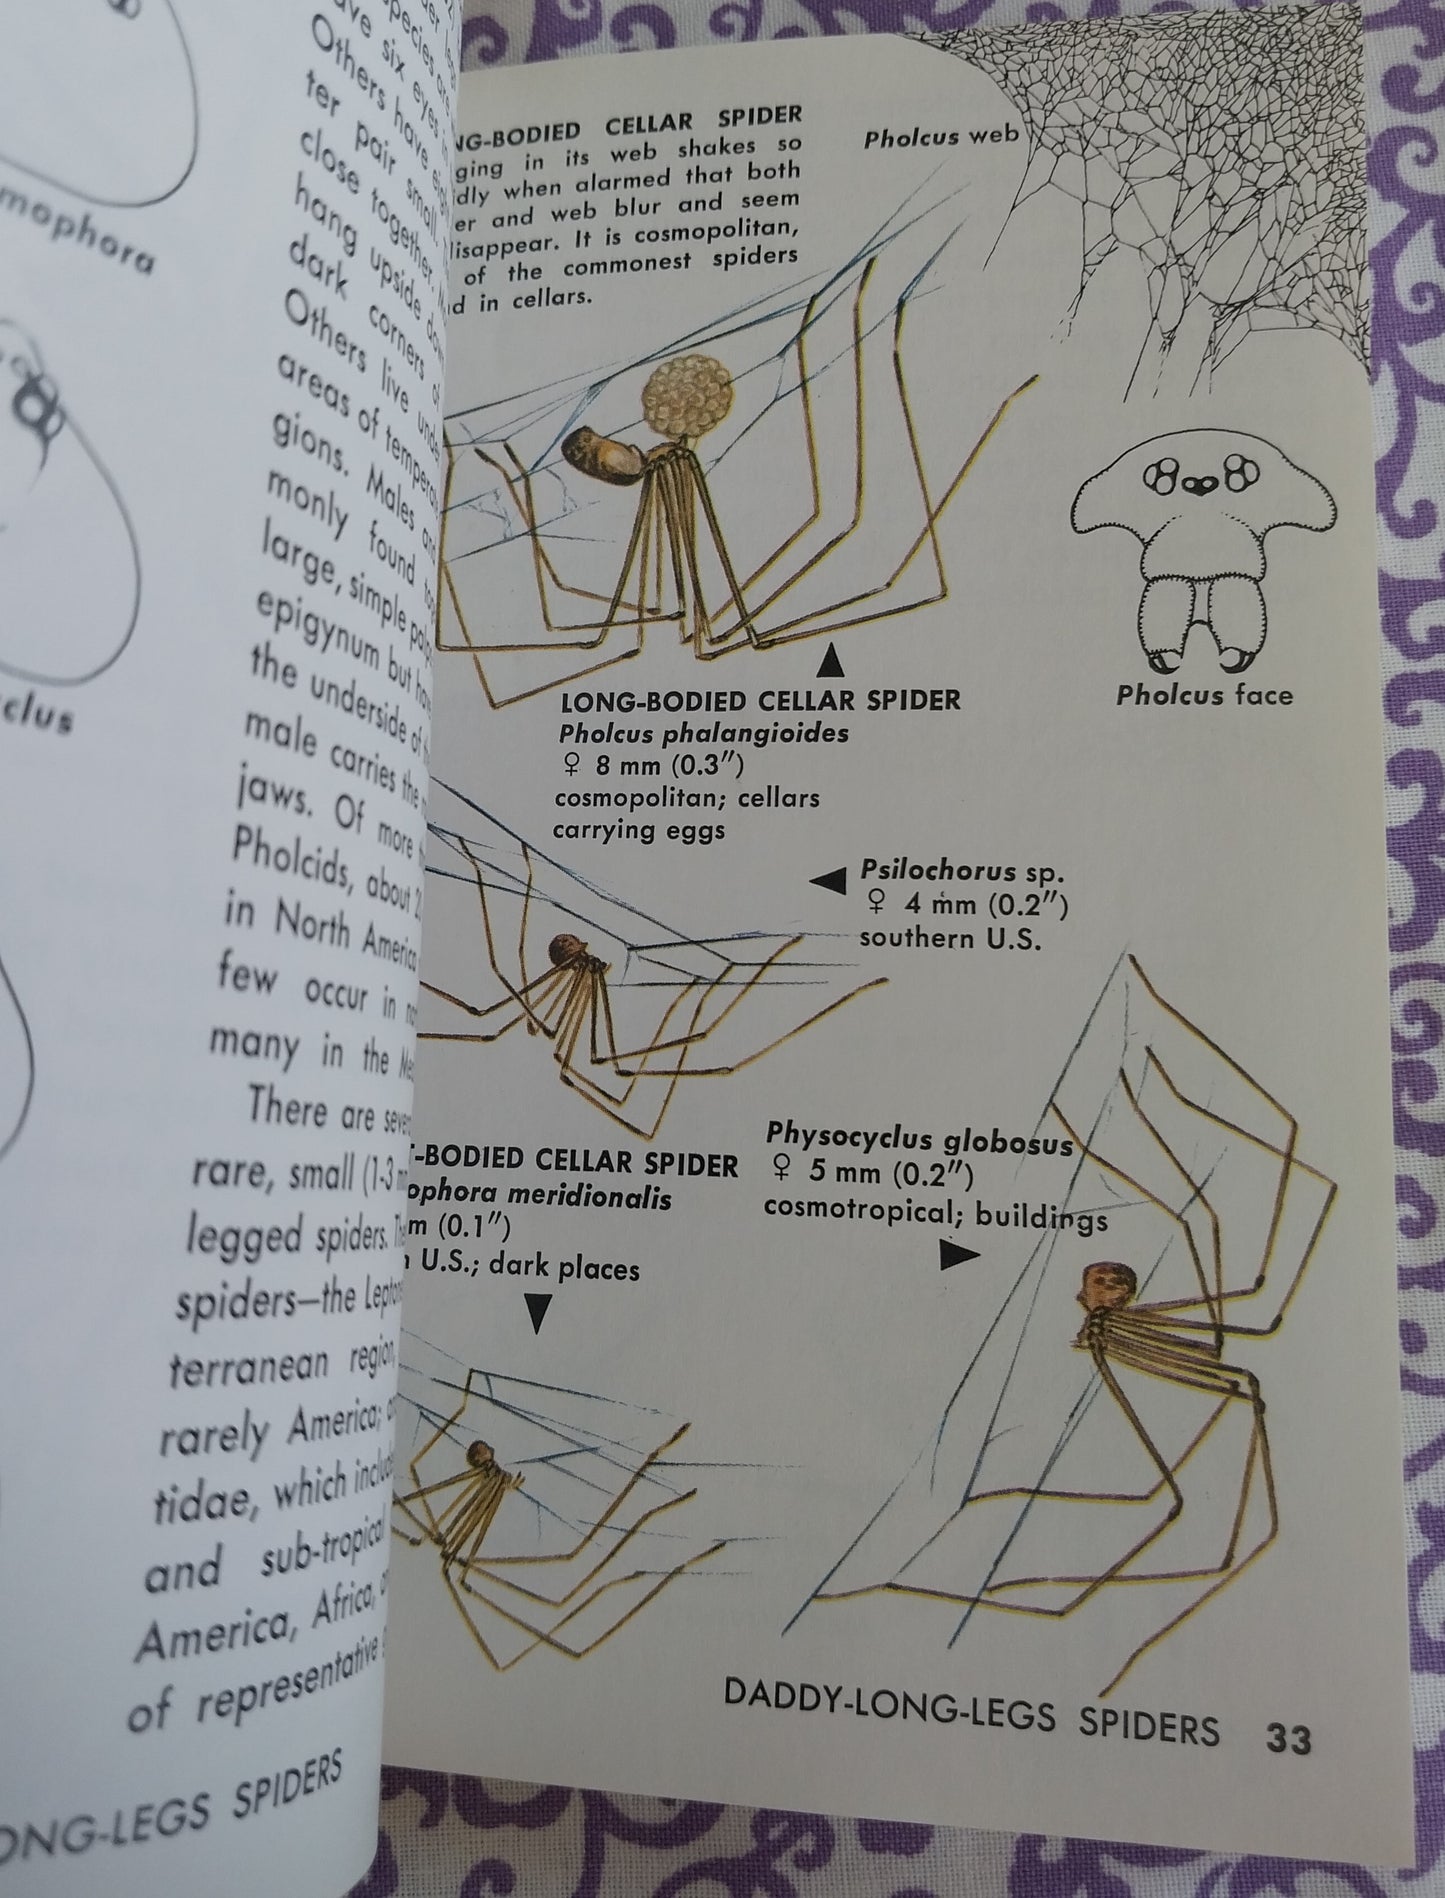 mophora
clus
ve six eyes in
Others have eigh
ter pair small
close together.
hang upside dow
dark corners of
Others live unde
areas of tempera
gions. Males and
monly found tog
large, simple palp
epigynum but ha
the underside of th
male carries the
jaws. Of more th
Pholcids, about 2
in North America
few occur in no
many in the Me
There are seve
rare, small (1-3 m
legged spiders. The
spiders—the Lepto
terranean region,
rarely America; a
tidae, which include
and sub-tropical
America, Africa,
of representative
ONG-LEGS SPIDERS
NG-BODIED CELLAR SPIDER
ging in its web shakes so
idly when alarmed that both
er and web blur and seem
disappear. It is cosmopolitan,
of the commonest spiders
d in cellars.
Pholcus web
Pholcus face
LONG-BODIED CELLAR SPIDER
Pholcus phalangioides
♀ 8 mm (0.3″)
cosmopolitan; cellars
carrying eggs
Psilochorus sp.
♀ 4 mm (0.2″)
southern U.S.
T-BODIED CELLAR SPIDER
ophora meridionalis
m (0.1″)
U.S.; dark places
Physocyclus globosus
♀ 5 mm (0.2″)
cosmotropical; buildings
DADDY-LONG-LEGS SPIDERS 33